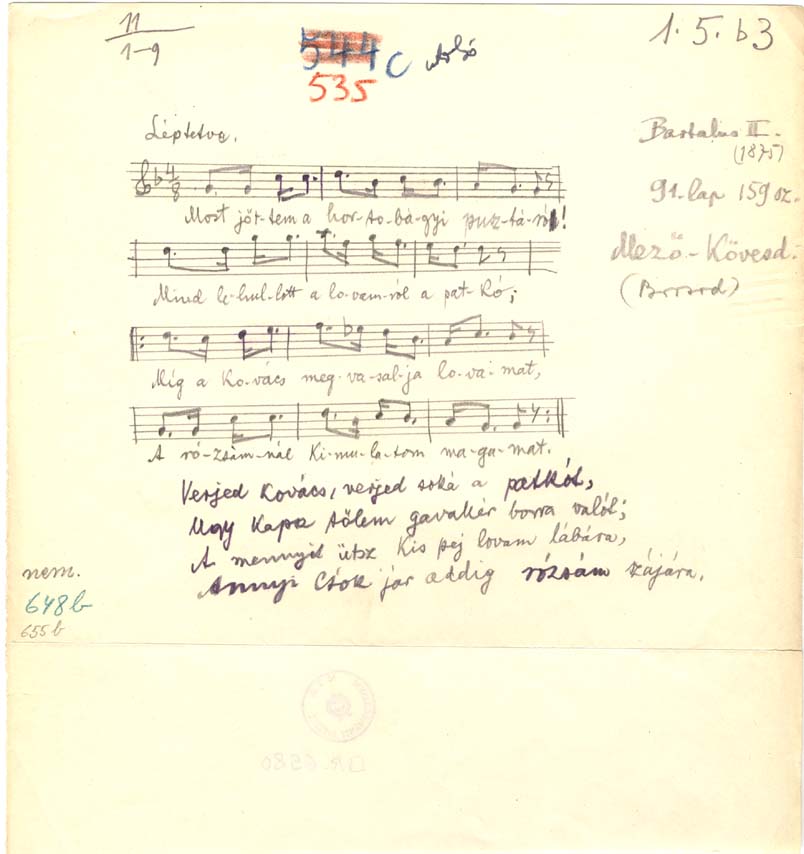 11
1–9
544 c utolsó
535
1. 5. b 3
Léptetve.
Bartalus II.
(1875)
91. lap 159 sz.
Mező-Kövesd.
(Borsod)
4/8
Most jöt-tem a hor-to-bá-gyi pusz-tá-ról!
Mind le-hul-lott a lo-vam-ról a pat-kó;
Míg a ko-vács meg-va-sal-ja lo-va-mat,
A ró-zsám-nál ki-mu-la-tom ma-ga-mat.
Verjed kovács, verjed soká a patkót,
Ugy kapsz tőlem gavakér borra valót;
A mennyit ütsz kis pej lovam lábára,
Annyi csók jár addig rózsám szájára.
nem.
648b
655b